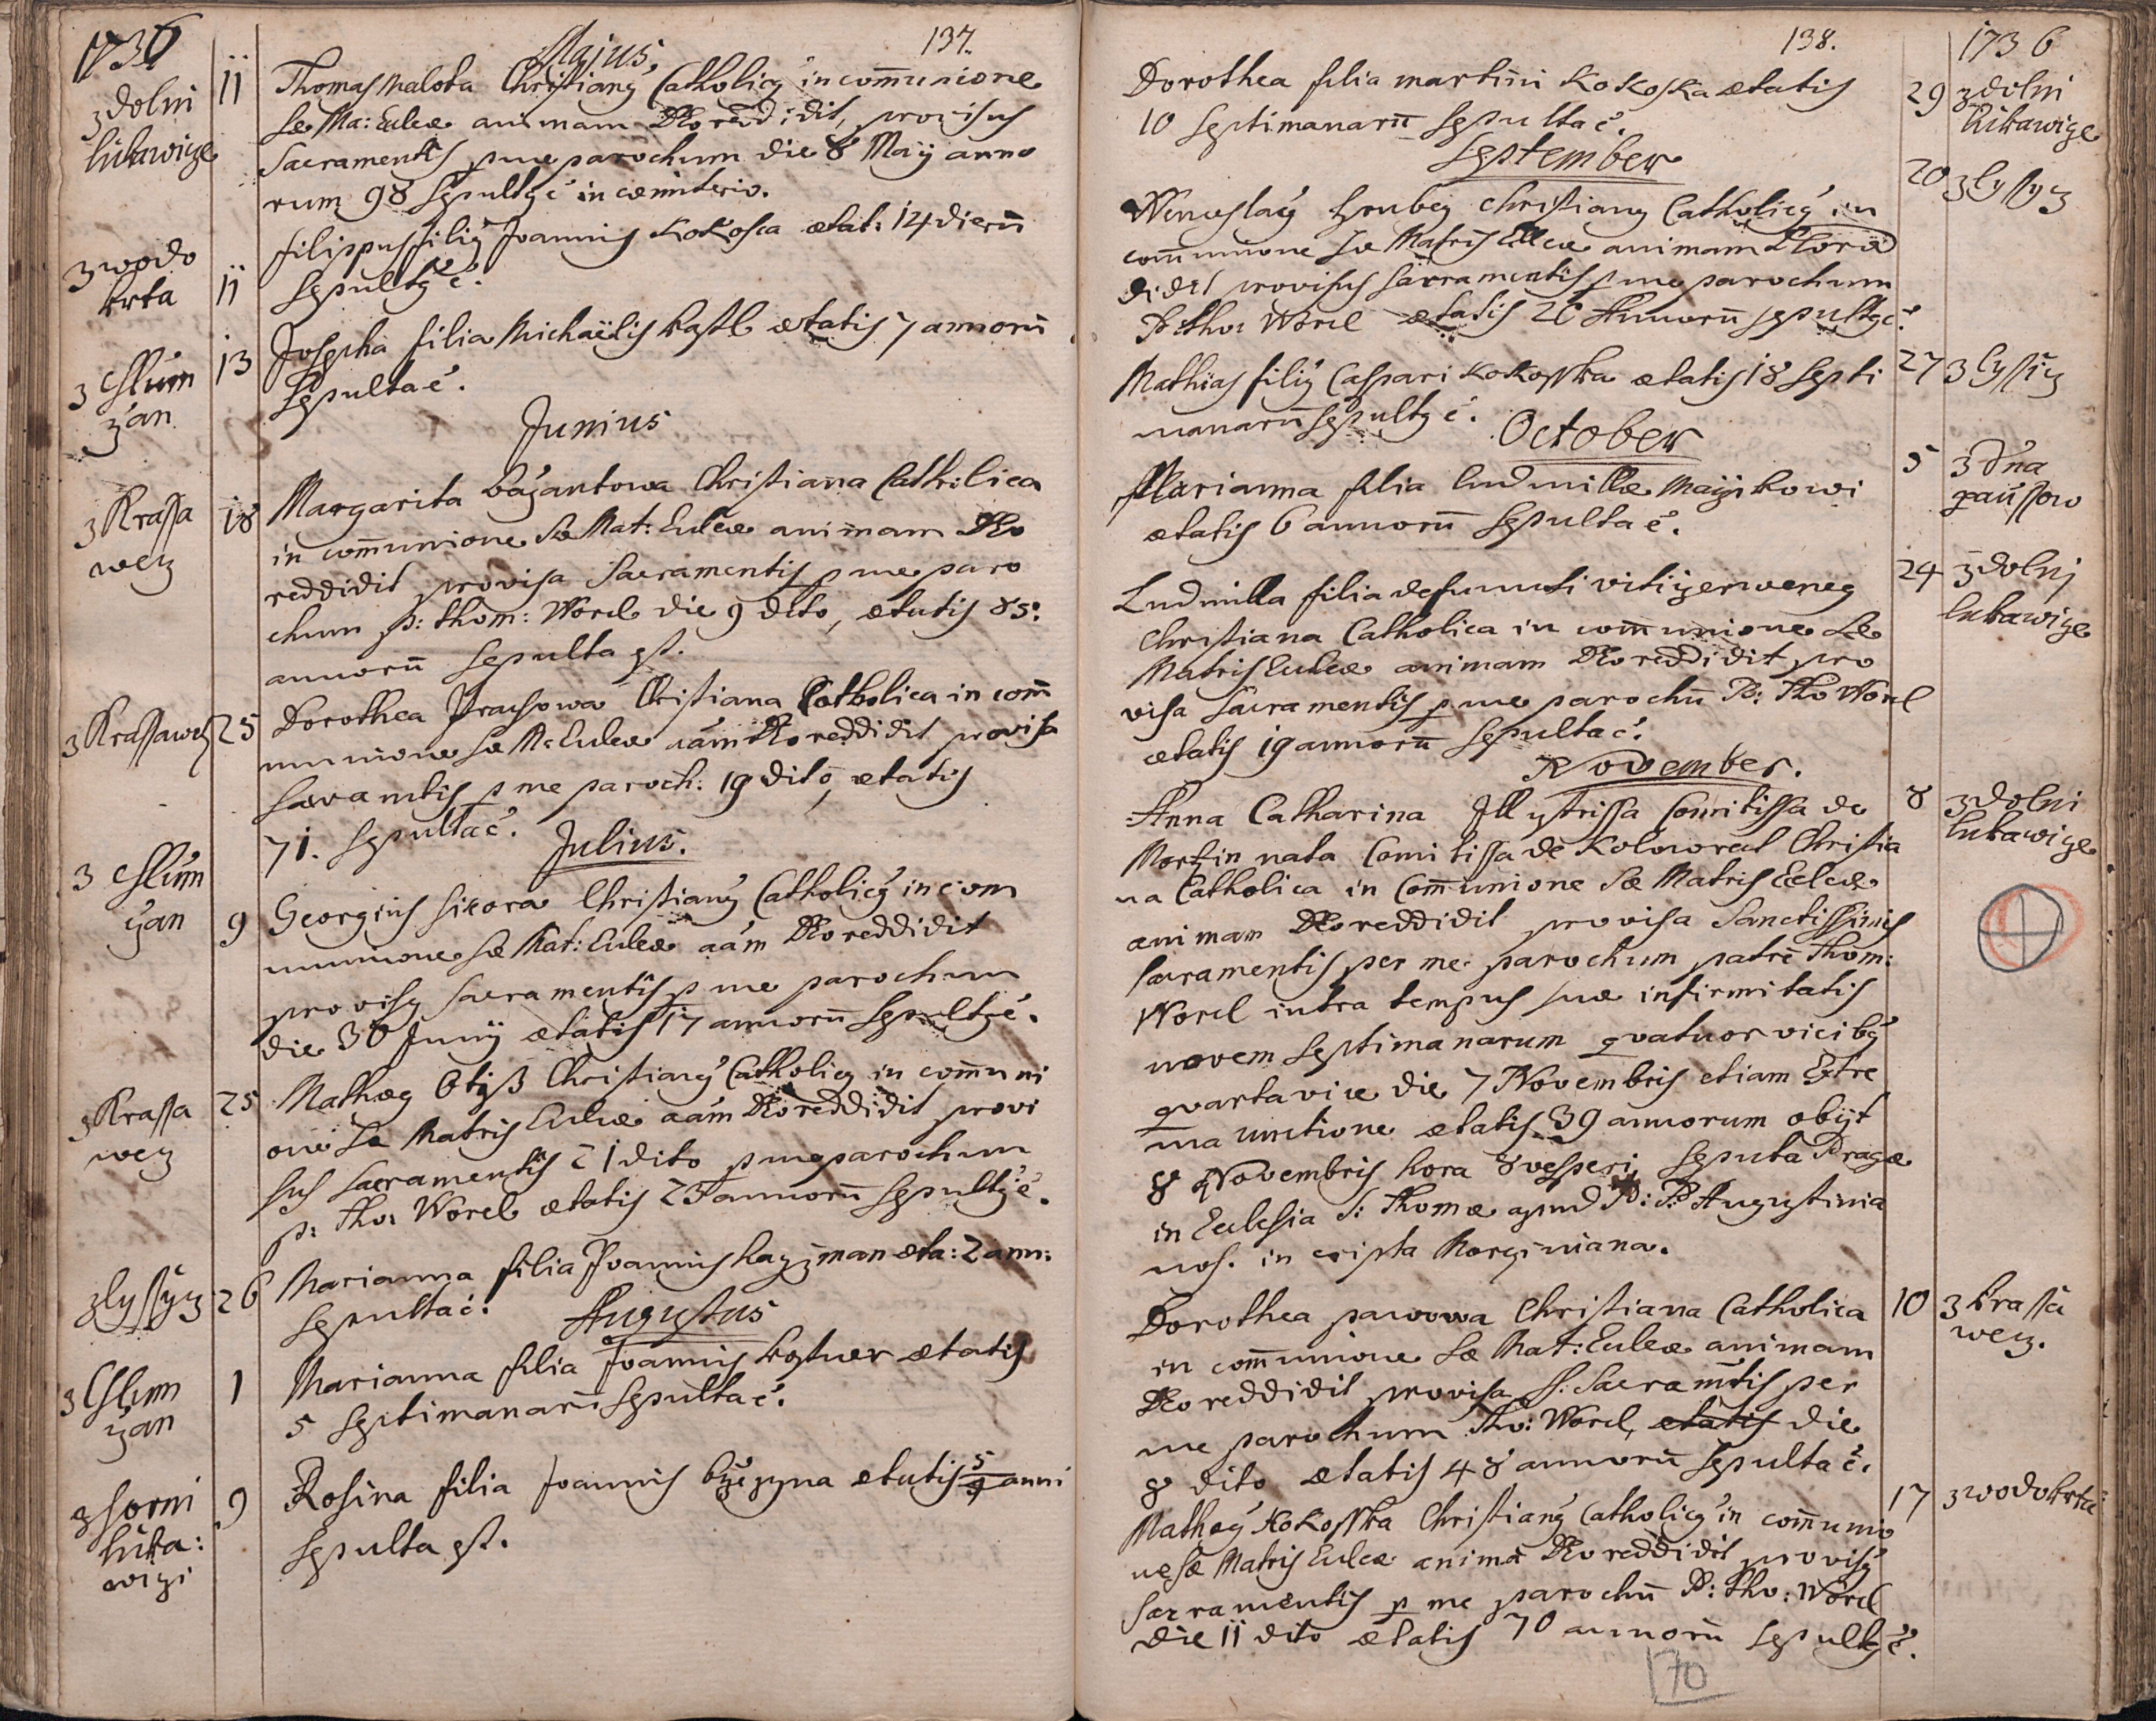 1736
Majus.
137.
z dolni
lukawize
11
Thomas Maloba Christiany Catholicy in com̄unione
Sæ Ma: Eulæ animam Deo reddidit, provisus
Sacramentis p me parochum die 8 Maÿ anno
rum 98 Sepulty ē in cæmiterio.
z wodo
krta
11
filippus filiy Joannis Kokosca ætat: 14 dierū
Sepulty ē.
z Chlum
zan
13
Josepha filia Michaëlis kastl ætatis 7 annorū
Sepulta ē.
Junius
z Krassa
wez
18
Margarita bazantowa Christiana Catholica
in com̄unione Sæ Mat: Eulæ animam Deo
reddidit provisa Sacramentis p me paro
chum p: thom: Worel die 9 dito, ætatis 85.
annorū sepulta est.
z Krassawez
25
Dorothea Christiana Catholica in com̄
munione Sæ M: Eulæ aām Deo reddidit provisa
Sacramtis p me paroch: 19 dito, ætatis
71. Sepulta ē.
Julius.
z Chlum
zan
9
Georgius Sicora Christiany Catholicy in com
munione Sæ Mat: Eulæ aām Deo reddidit
provisy sacramentis p me parochum
die 30 Juny ætatis 17 annorū Sepulty ē.
z Krassa
wez
25
Mathæy Christiany Catholicy in com̄uni
one Sæ Matris Eulæ aām Deo reddidit provi
sus sacramentis 21 dito p me parochum
p: Tho: Worel ætatis 25 annorū Sepulty ē.
z lyssyz
26
Marianna filia Joannis hayzman æta: 2 ann:
Sepulta ē.
Augustus
z Chlum
zan
1
Marianna filia Joannis kastner ætatis
5 septimanarū Sepulta ē.
z horni
luka:
wizi
9
Rosina filia Joannis bržezyna ætatis 5/9 anni
Sepulta est.
138.
1736
Dorothea filia martini Kokoska ætatis
10 Septimanarū Sepulta ē.
29
z dolni
lukawize
September
Wenceslay hrubey Christiany Catholicy in
com̄unione Sæ Matris Ecclæ animam Deo re
didit provisus sacramentis p me parochum
P: tho: Worel ætatis 20 Annorū sepulty ē.
20
z lyssyz
Mathias filiy Caspari Kokosska ætatis 18 septi
manarū sepulty ē.
27
z lyssiz
October
Marianna filia ludmillæ
ætatis 6 annorū Sepulta ē.
5
z dna
paussow
Ludmilla filia defuncti viti zerweney
Christiana Catholica in com̄unione Sæ
Matris Eulæ animam Deo reddidit pro
visa Sacramentis p me parochū P: Tho Worel
ætatis 19 annorū Sepulta ē.
24
z dolni
lukawize
November.
Anna Catharina Illustrissa Comitissa de
Morzin nata Comitissa de Kolowrat Christia
na Catholica in Com̄unione Sæ Matris Eclæ
animam Deo reddidit provisa Sanctissimis
sacramentis per me parochum patrē Thom:
Worel intra tempus suæ infirmitatis
novem septimanarum quatuor viciby
quarta vice die 7 Novembris etiam Extre
ma unctione ætatis 39 annorum obijt
8 Novembris hora 8 vesperi, Sepulta Pragæ
in Eclesia S: Thomæ apud P: P: Augustinia
nos. in cripta Morziniana.
8
z dolni
lukawize
Dorothea Christiana Catholica
in com̄unione Sæ Mat: Eulæ animam
Deo reddidit provisa S: Sacramtis per
me parochum Tho: Worel, ætatis die
8 dito ætatis 48 annorū Sepulta ē.
10
z krassa
wez.
Mathey Kokosska Christiany Catholicy in com̄unio
ne Sæ Matris Eulæ animā Deo reddidit provisy
Sacramentis p me parochū P: Tho: Worel
die 11 dito ætatis 70 annorū Sepulty ē.
17
z wodokrta
170